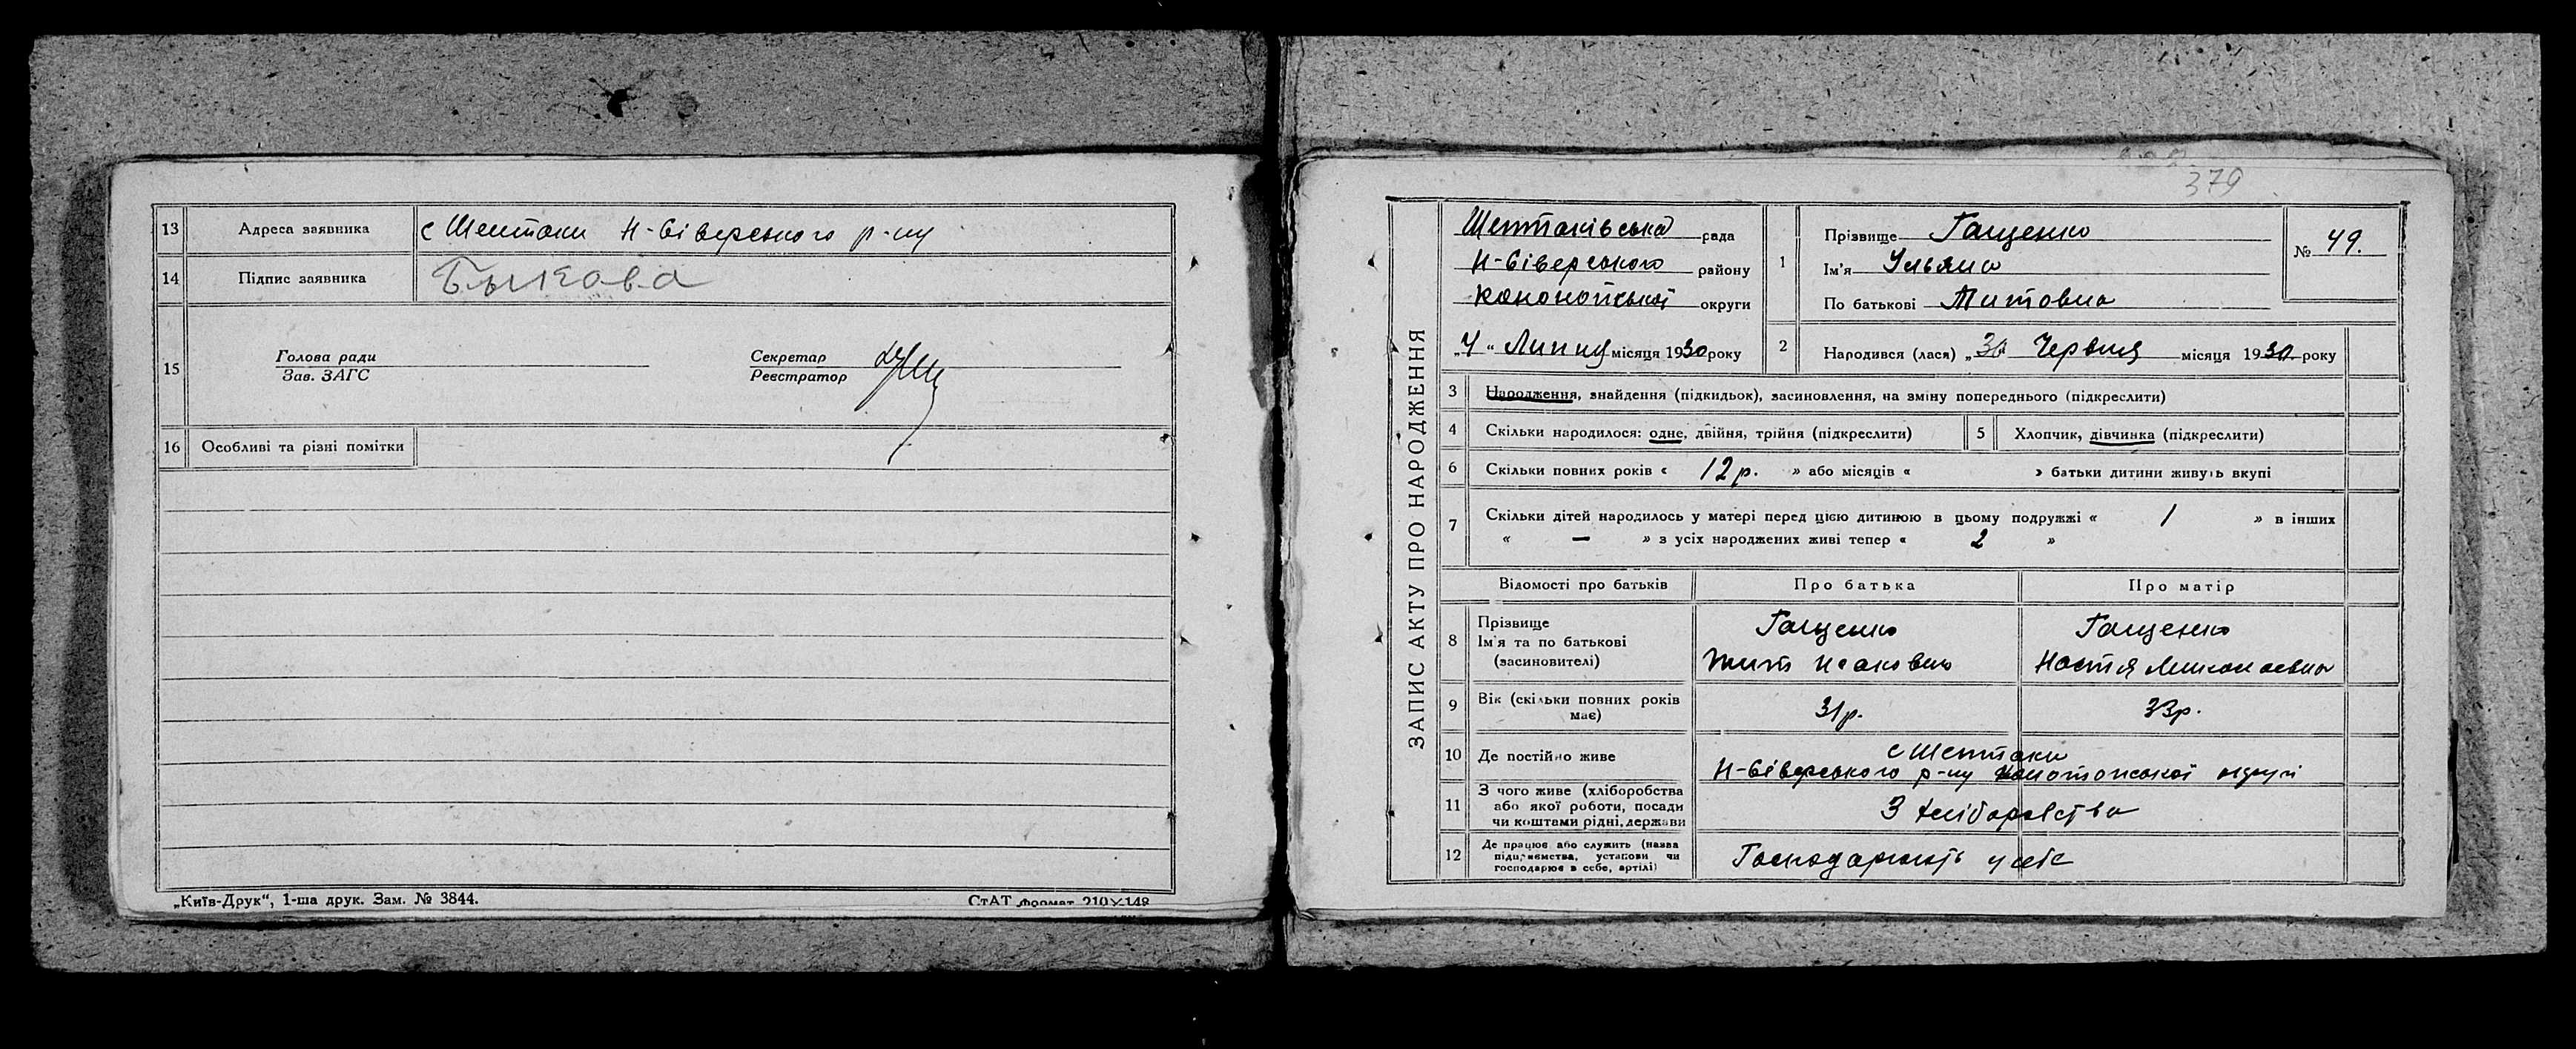 13 Адреса заявника с Шептаки Н-Сіверського р-ну
14 Підпис заявника Быкова
15 Голова ради
Зав. ЗАГС
Секретар
Реєстратор
16 Особливі та різні помітки
„Київ-Друк“, 1-ша друк. Зам. № 3844.
СтАТ формат 210×148
379
ЗАПИС АКТУ ПРО НАРОДЖЕННЯ
Шептаківська рада
Н-Сіверського району
округи
„4“ Липня місяця 1930 року
1 Прізвище Гащенко
Ім'я Ульяна
По батькові Титовна
№ 49.
2 Народився (лася) „ Червня місяця 1930 року
3 Народження, знайдення (підкидьок), засиновлення, на зміну попереднього (підкреслити)
4 Скільки народилося: одне, двійня, трійня (підкреслити)
5 Хлопчик, дівчинка (підкреслити)
6 Скільки повних років « 12 р. » або місяців « » батьки дитини живуть вкупі
7 Скільки дітей народилось у матері перед цією дитиною в цьому подружжі « 1 » в інших
« — » з усіх народжених живі тепер « 2 »
Відомості про батьків Про батька Про матір
8 Прізвище
Ім'я та по батькові
(засиновителі)
Гащенко
Тит Исакович
Гащенко
Настя Миколаевна
9 Вік (скільки повних років
має)
31 р.
33 р.
10 Де постійно живе
с Шептаки
Н-Сіверського р-ну Конотопської округи
11 З чого живе (хліборобства
або якої роботи, посади
чи коштами рідні, держави
З хліборобства
12 Де працює або служить (назва
підприємства, установи чи
господарює в себе, артілі)
Господарюють у себе